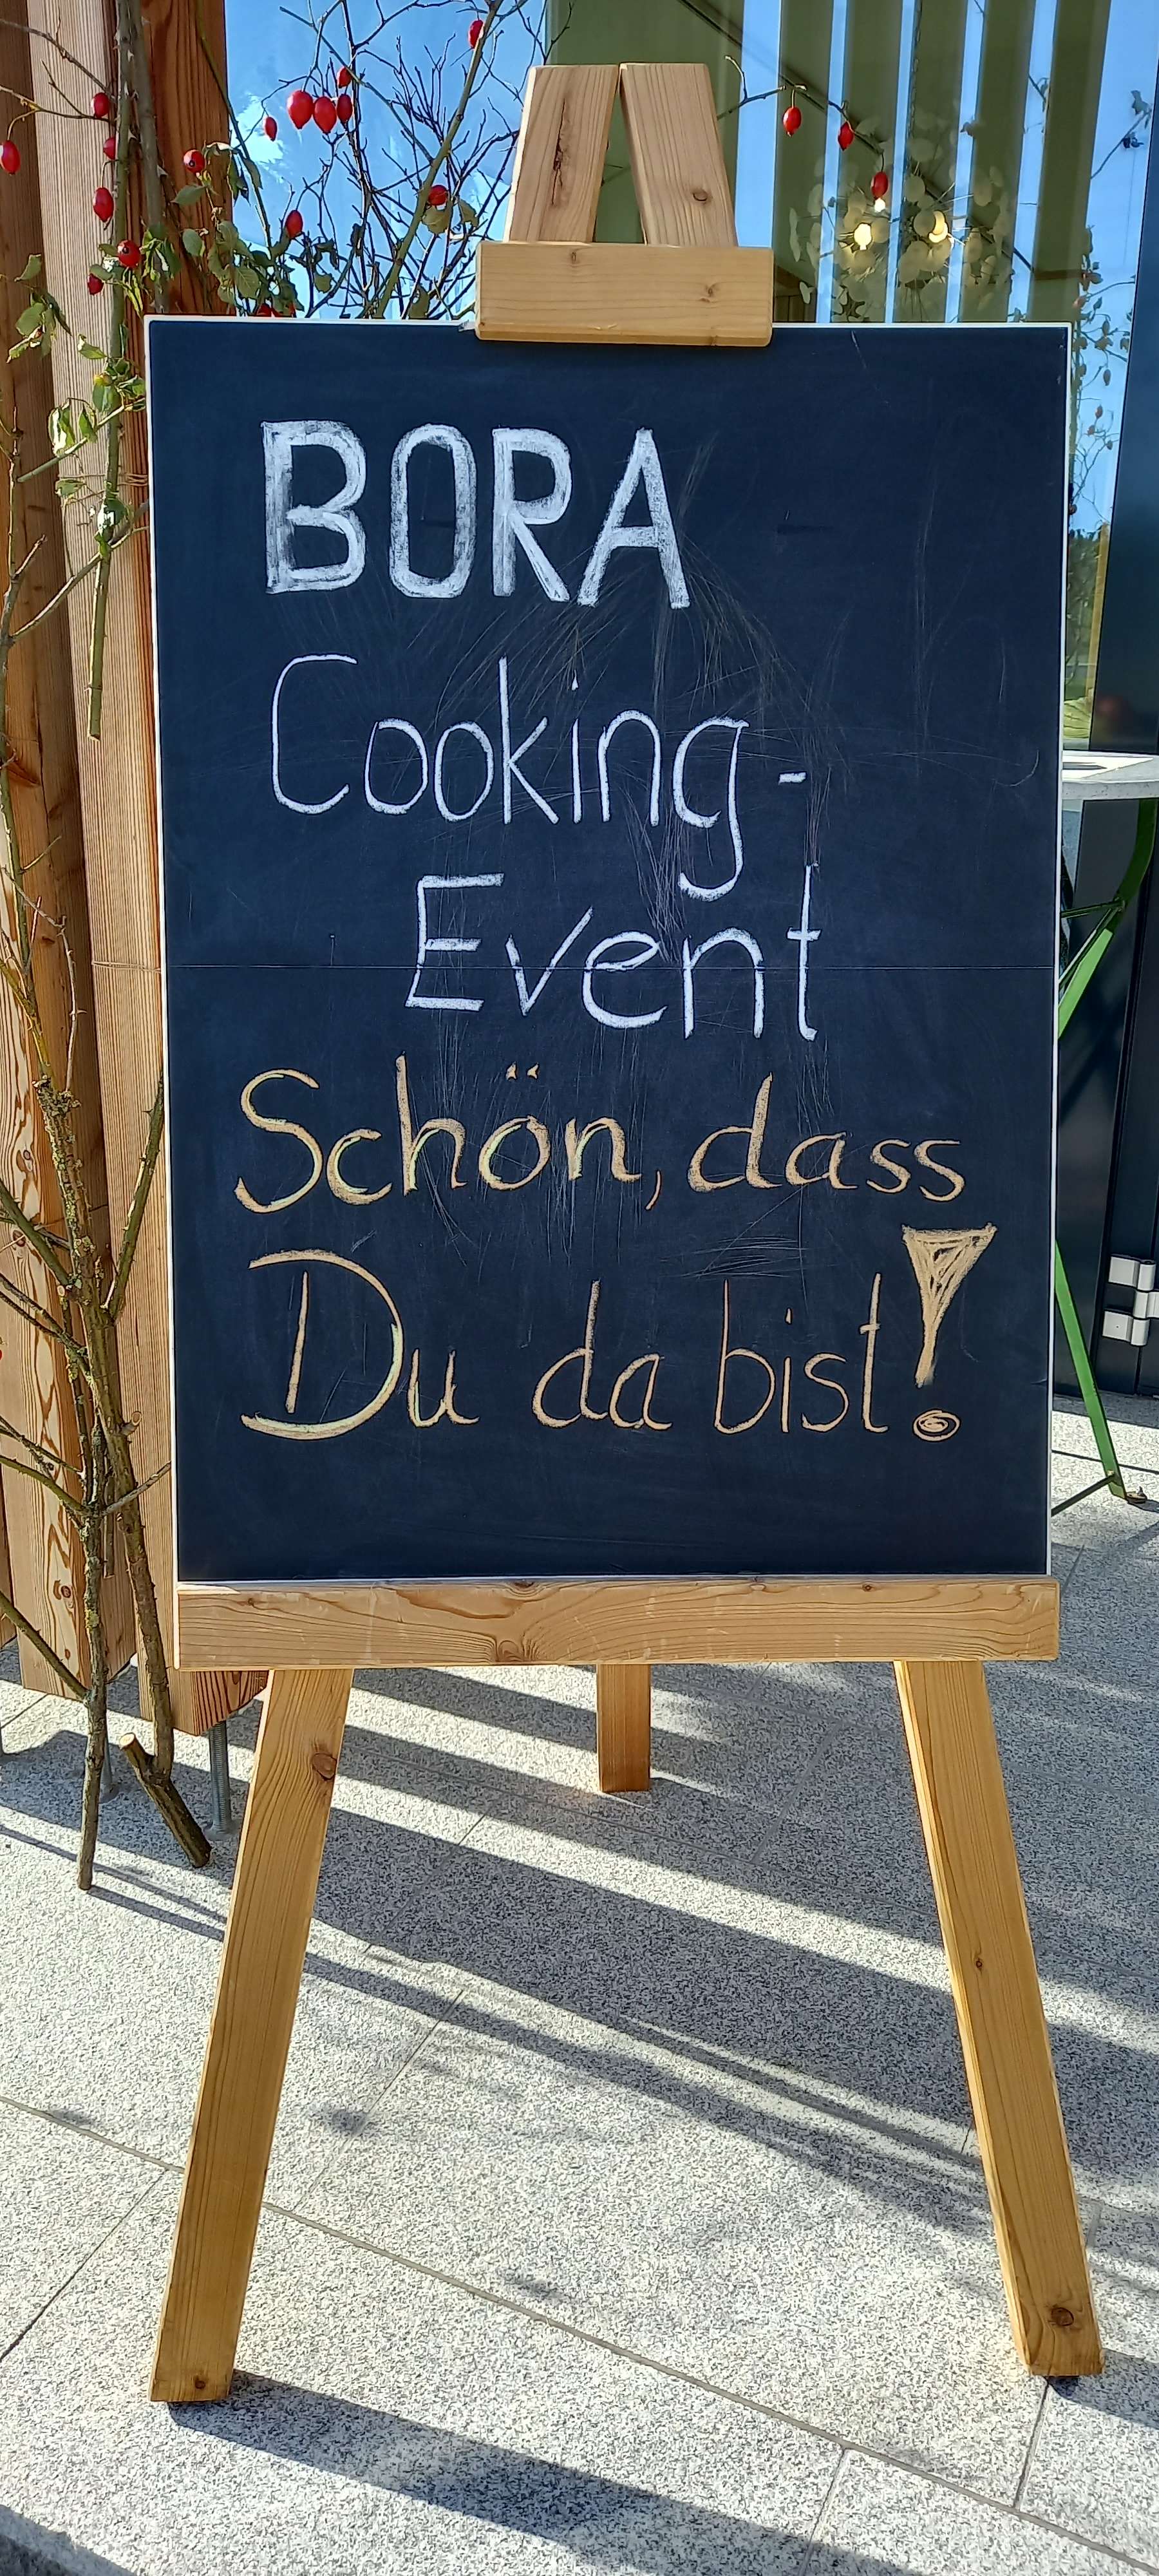 BORA
Cooking-
Event
Schön, dass
Du da bist!